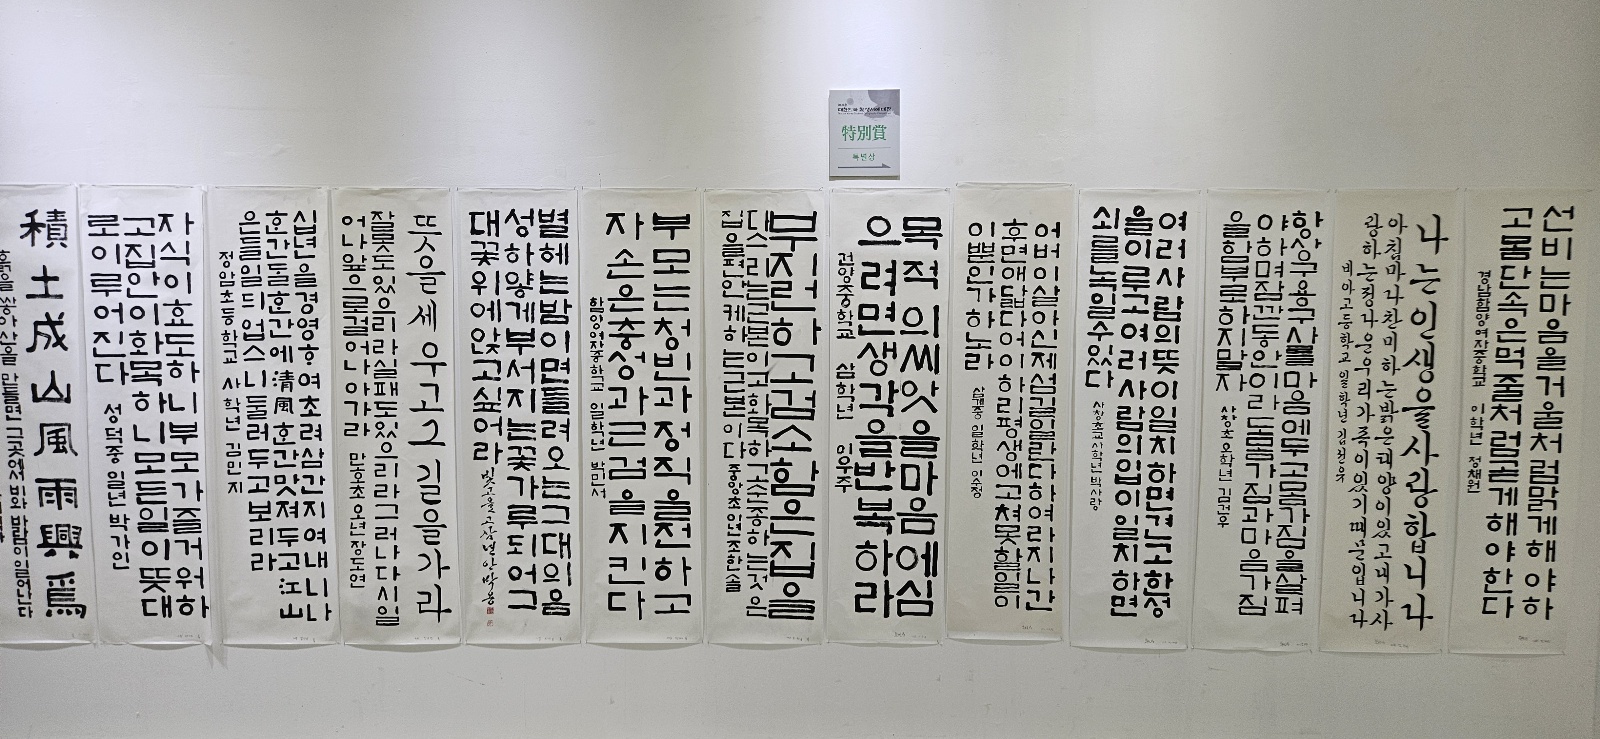 대한민국 학생서예대전
特別賞
특별상
선비는마음을거울처럼맑게해야하
고몸단속은먹줄처럼곧게해야한다
경남함양여자중학교 이학년 정채원
나는인생을사랑합니다
아침마다찬미하는밝은태양이있고내가사
랑하는정다운우리가족이있기때문입니다
비아고등학교 일학년 김선유
항상구용구사를마음에두고몸가짐을살펴
야하며잠깐동안이라도몸가짐과마음가짐
을함부로하지말자
상창초오학년 김건우
여러사람의뜻이일치하면견고한성
을이루고여러사람의입이일치하면
쇠를녹일수있다
사창초교사학년박사랑
어버이살아신제섬김일란다하여라지나간
후면애닯다어이하리평생에고쳐못할일이
이뿐인가하노라
삼계중 일학년 이수정
목적의씨앗을마음에심
으려면생각을반복하라
건양중학교 삼학년 이우주
부지런하고검소함은집을
다스리는근본이고화목하고순종하는것은
집을편안케하는근본이다
중앙초이년조한솔
부모는청빈과정직을전하고
자손은충성과근검을지킨다
함양여자중학교 일학년 박민서
별헤는밤이면들려오는그대의음
성하얗게부서지는꽃가루되어그
대꽃위에앉고싶어라
뜻을세우고그길을가라
잘될수도있으리라실패도있으리라그러나다시일
어나앞으로걸어나아가라
만호초오년장도연
십년을경영하여초려삼간지여내니나
한간달한간에淸風한간맛져두고江山
은들일듸업스니둘러두고보리라
정암초등학교 사학년 김민지
자식이효도하니부모가즐거워하
고집안이화목하니모든일이뜻대
로이루어진다
성덕중 일년 박가인
積土成山風雨興焉
흙을쌓아산을만들면그곳에서비와바람이일어난다